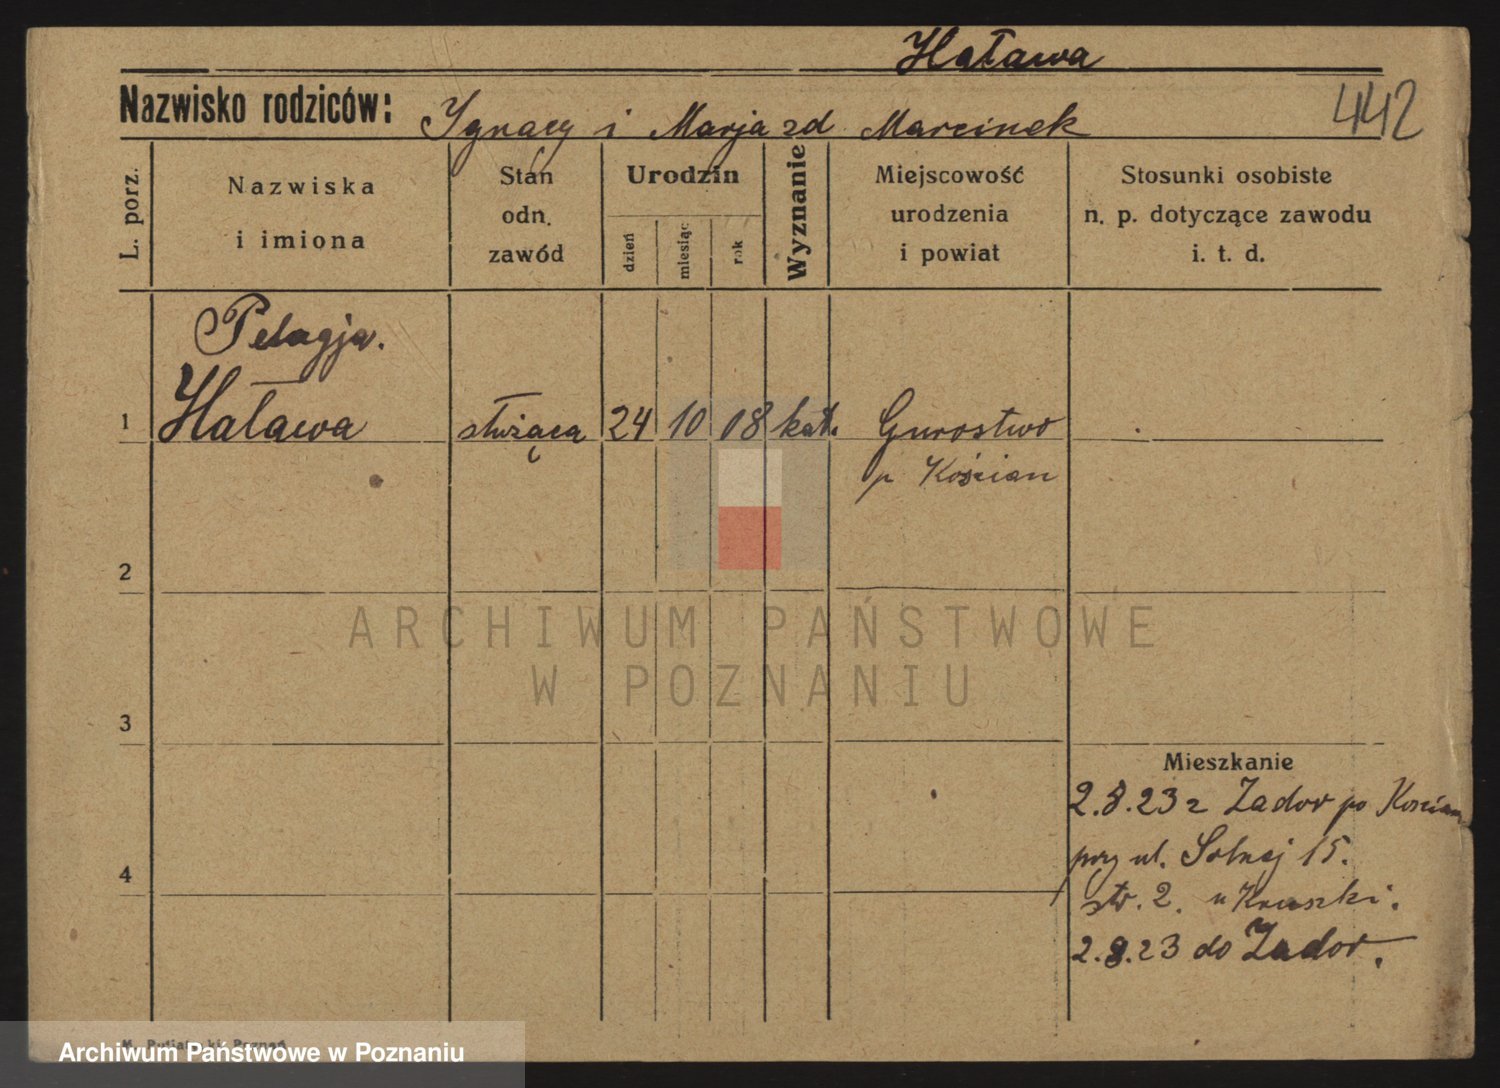 Haława
Nazwisko rodziców: Ignacy i Marja zd Marcinek
442
L. porz.
Nazwiska
i imiona
Stan
odn.
zawód
Urodzin
dzień
miesiąc
rok
Wyznanie
Miejscowość
urodzenia
i powiat
Stosunki osobiste
n. p. dotyczące zawodu
i. t. d.
Pelagja.
1 Haława służąca 24 10 08 kat. Gurostwo
p Kościan
2
3
Mieszkanie
2.8.23 z Zador po Kościan
przy ul. Solnej 15.
4
str. 2. u Kruszki.
2.8.23 do Zador.
ARCHIWUM PAŃSTWOWE
W POZNANIU
Poznań
Archiwum Państwowe w Poznaniu